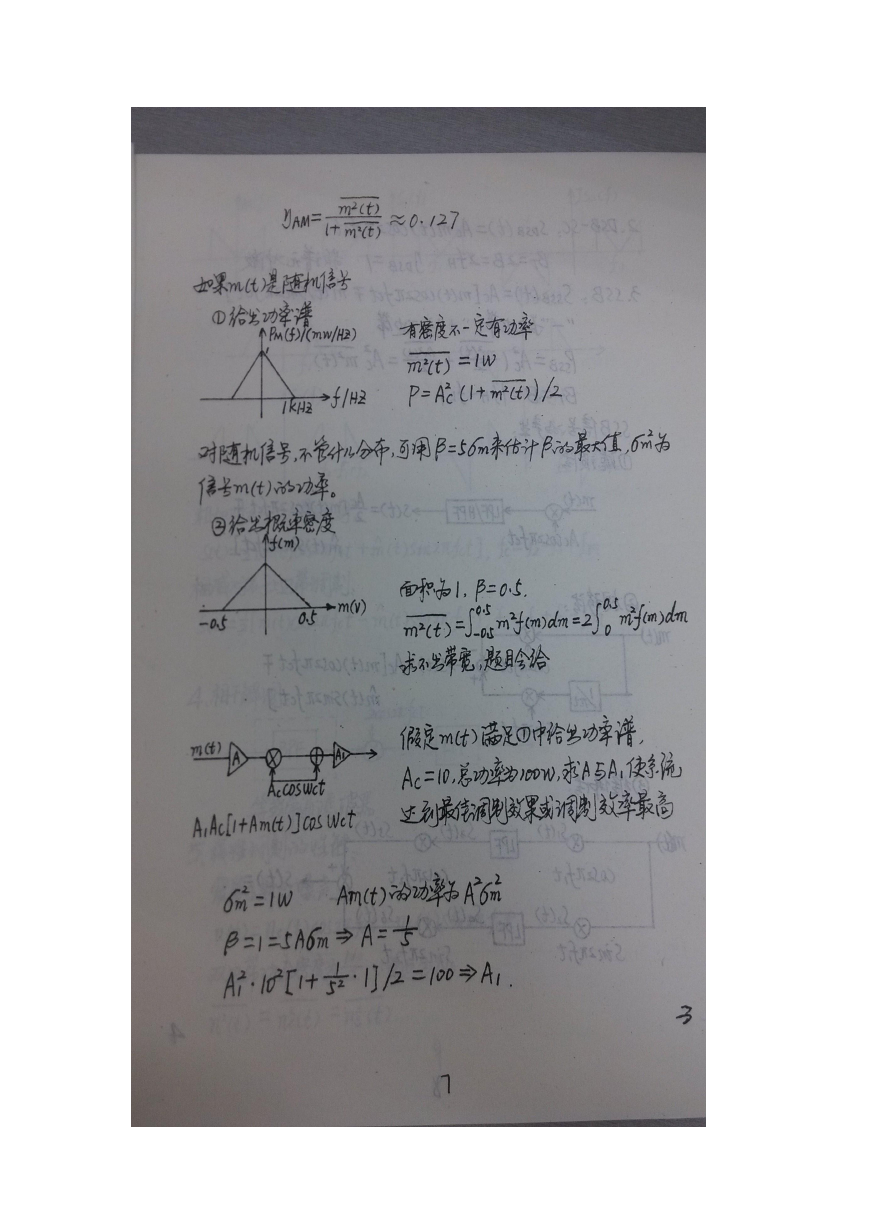 η_AM = \overline{m²(t)} / (1+\overline{m²(t)}) ≈ 0.127
如果m(t)是随机信号
①给出功率谱
Pm(f)/(mW/HZ)
1
1KHZ f/HZ
有密度不一定有功率
\overline{m²(t)} = 1W
P = A_c² (1+\overline{m²(t)})/2
对随机信号,不管什么分布,可用β=5σm来估计β的最大值,σm²为
信号m(t)的功率。
②给出概率密度
f(m)
-0.5 0.5 m(V)
面积为1, β=0.5.
\overline{m²(t)} = ∫_{-0.5}^{0.5} m²f(m)dm = 2∫_0^{0.5} m²f(m)dm
求不出带宽,题目会给
m(t) A A₁
Accosωct
A₁Ac[1+Am(t)]cosωct
假定m(t)满足①中给出功率谱,
Ac=10,总功率为100W,求A与A₁,使系统
达到最佳调制效果或调制效率最高
σm²=1W Am(t)的功率为A²σm²
β=1=5Aσm ⇒ A=1/5
A₁²·10²[1+1/5²·1]/2=100 ⇒ A₁.
3
7